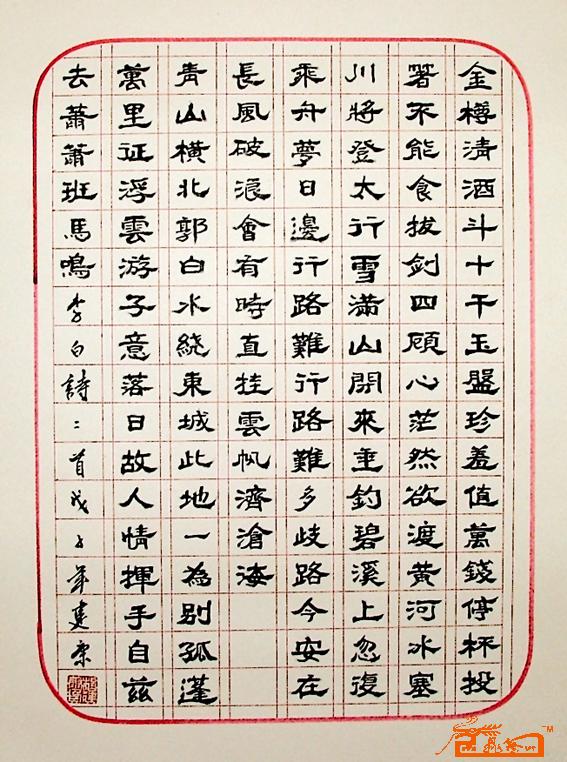 金樽清酒斗十千玉盤珍羞值萬錢停杯投
箸不能食拔劍四顧心茫然欲渡黃河冰塞
川將登太行雪滿山閒來垂釣碧溪上忽復
乘舟夢日邊行路難行路難多歧路今安在
長風破浪會有時直挂雲帆濟滄海
青山橫北郭白水繞東城此地一為別孤蓬
萬里征浮雲游子意落日故人情揮手自茲
去蕭蕭班馬鳴李白詩二首戊子年建康